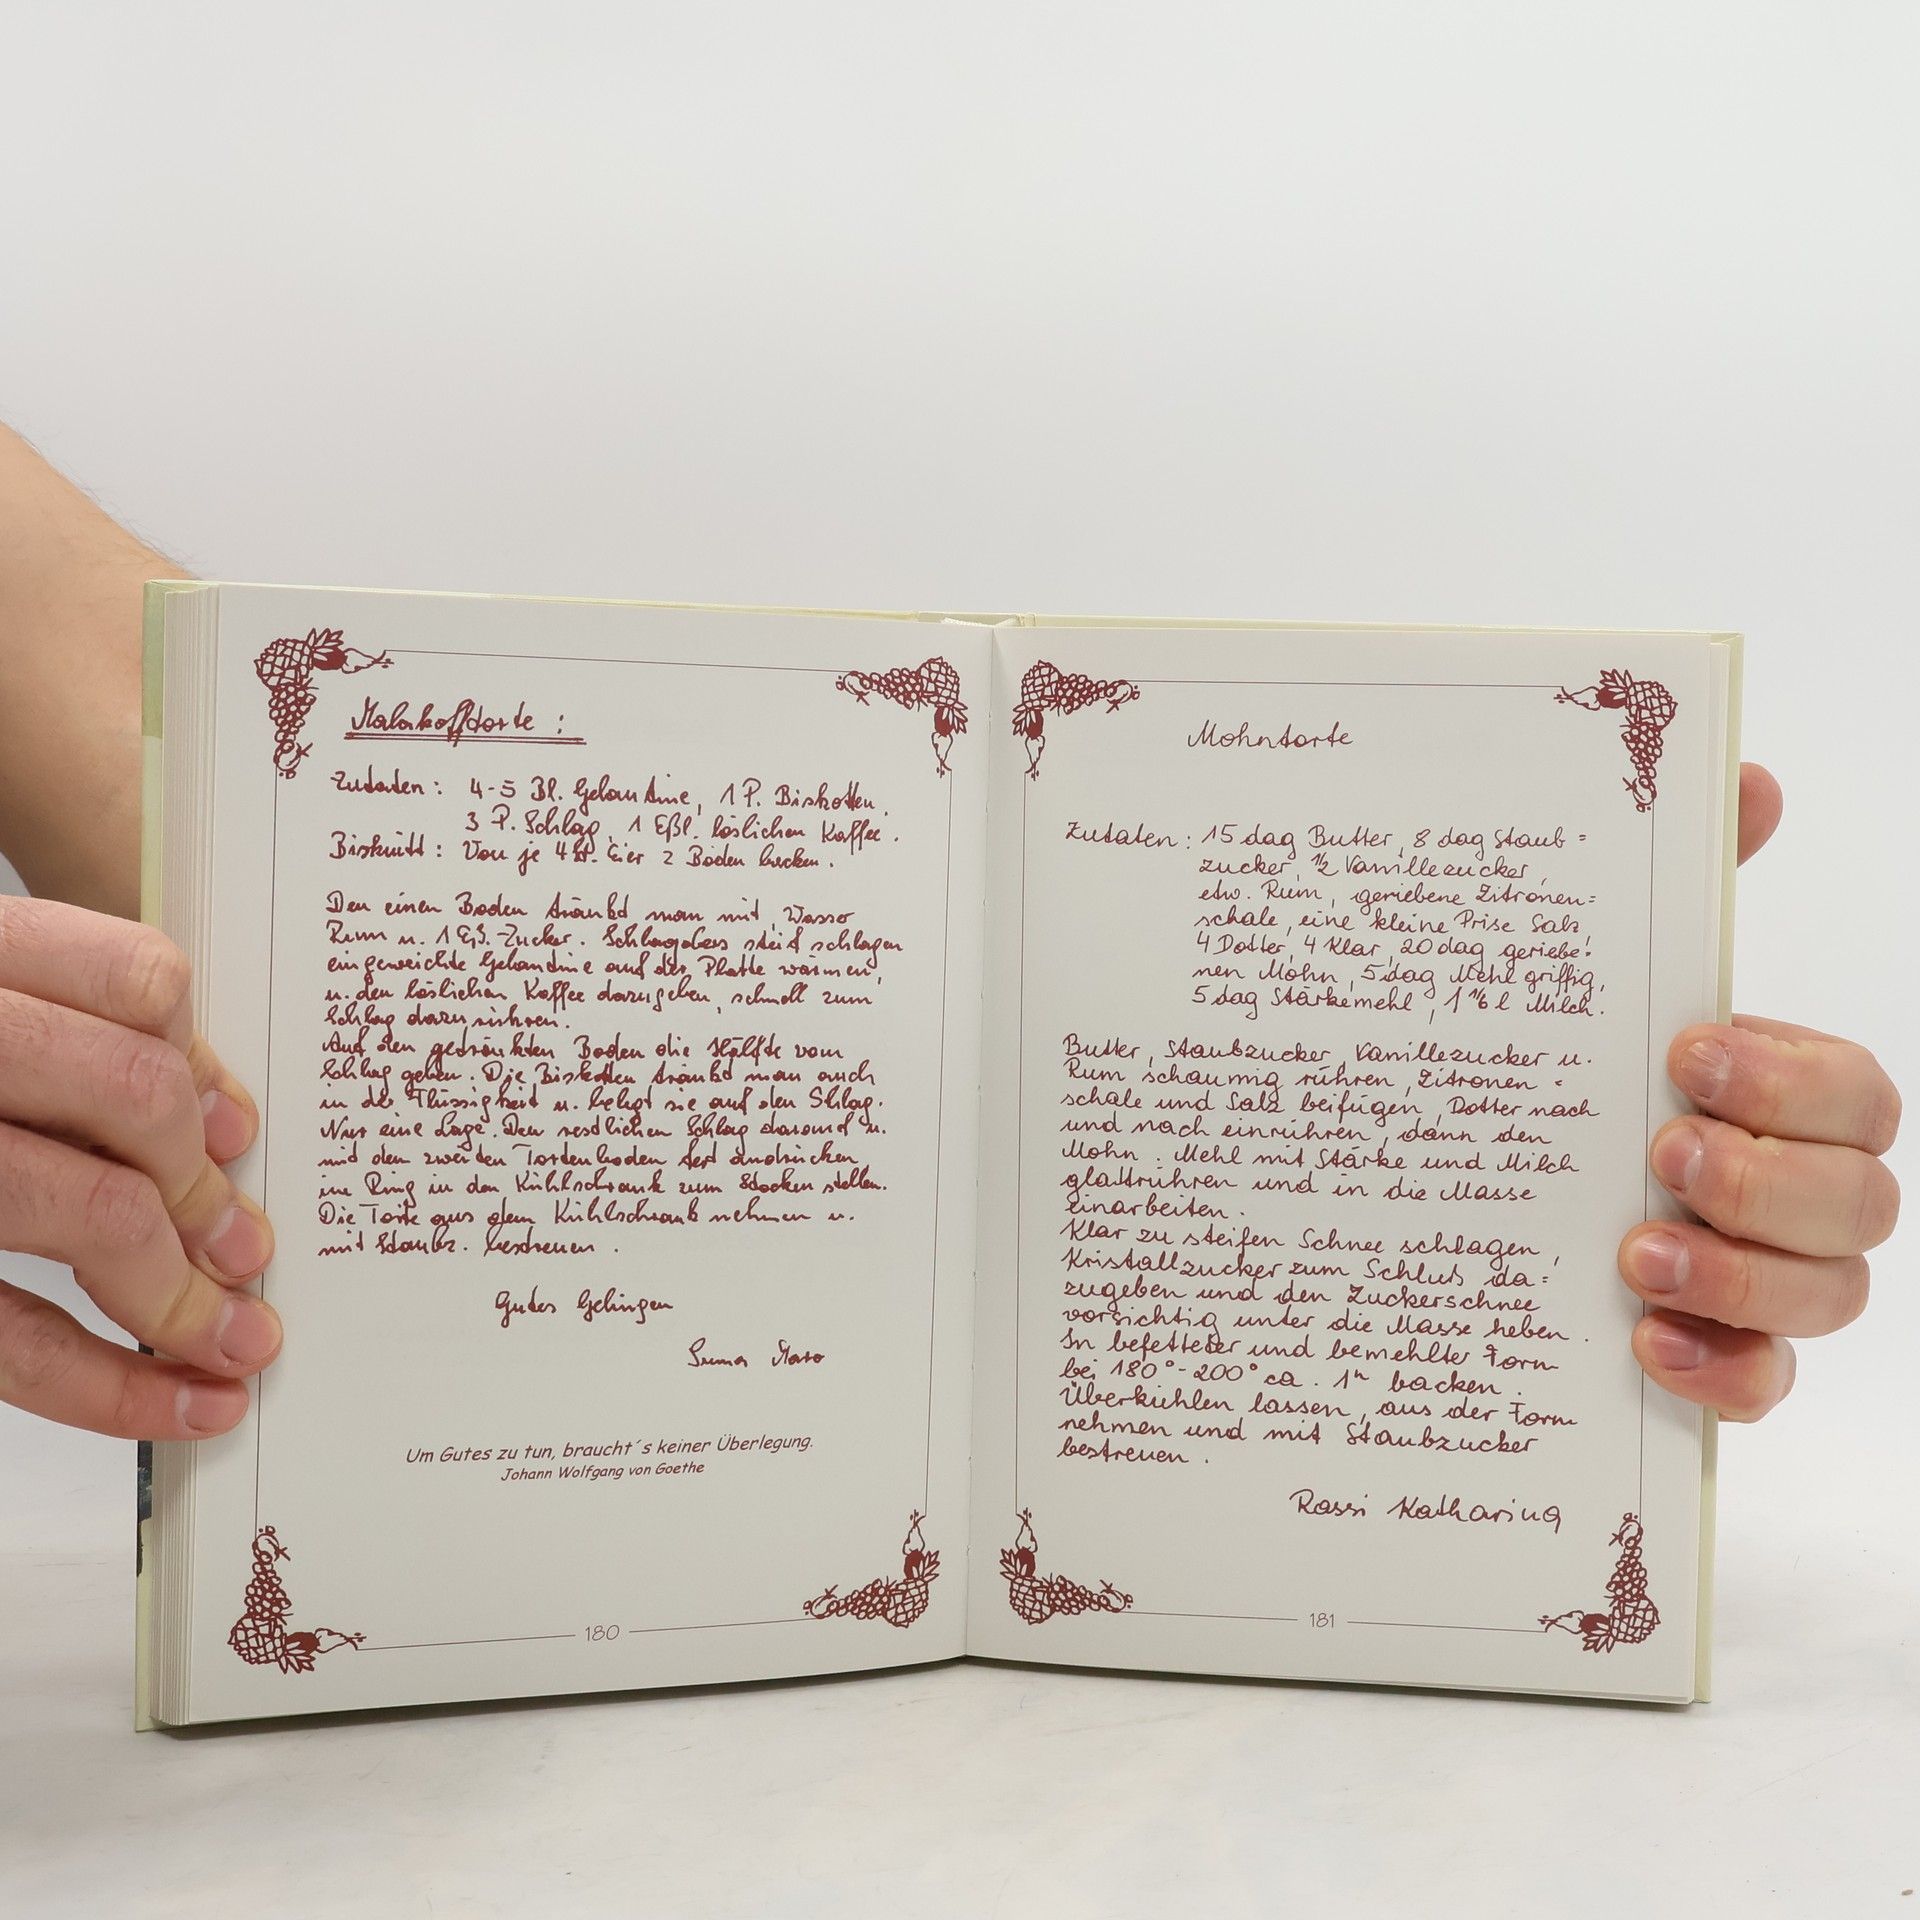 Malakofftorte :
Zutaten : 4-5 Bl. Gelantine, 1 P. Biskotten.
3 P. Schlag, 1 Eßl. löslichen Kaffee.
Biskuitt : Von je 4 Eier 2 Böden backen.
Den einen Boden tränkt man mit Wasser
Rum u. 1 Eß. Zucker. Schlagobers steif schlagen
eingeweichte Gelantine auf der Platte wärmen,
u. den löslichen Kaffee dazugeben, schnell zum
Schlag dazu rühren.
Auf den getränkten Boden die Hälfte vom
Schlag geben. Die Biskotten tränkt man auch
in der Flüssigkeit u. belegt sie auf den Schlag.
Nur eine Lage. Den restlichen Schlag darauf u.
mit den zweiten Tortenboden fest andrücken
im Ring in den Kühlschrank zum Stocken stellen.
Die Torte aus dem Kühlschrank nehmen u.
mit Staubz. bestreuen.
Gutes Gelingen
Um Gutes zu tun, braucht´s keiner Überlegung.
Johann Wolfgang von Goethe
180
Mohntorte
Zutaten : 15 dag Butter, 8 dag Staub=
zucker, 1/2 Vanillezucker,
etw. Rum, geriebene Zitronen=
schale, eine kleine Prise Salz,
4 Dotter, 4 Klar, 20 dag geriebe=
nen Mohn, 5 dag Mehl griffig,
5 dag Stärkemehl, 1 1/16 l Milch.
Butter, Staubzucker, Vanillezucker u.
Rum schaumig rühren, Zitronen=
schale und Salz beifügen, Dotter nach
und nach einrühren, dann den
Mohn. Mehl mit Stärke und Milch
glattrühren und in die Masse
einarbeiten.
Klar zu steifen Schnee schlagen,
Kristallzucker zum Schluß da=
zugeben und den Zuckerschnee
vorsichtig unter die Masse heben.
In befetteter und bemehlter Form
bei 180°-200° ca. 1h backen.
Überkühlen lassen, aus der Form
nehmen und mit Staubzucker
bestreuen.
Rassi Katharina
181